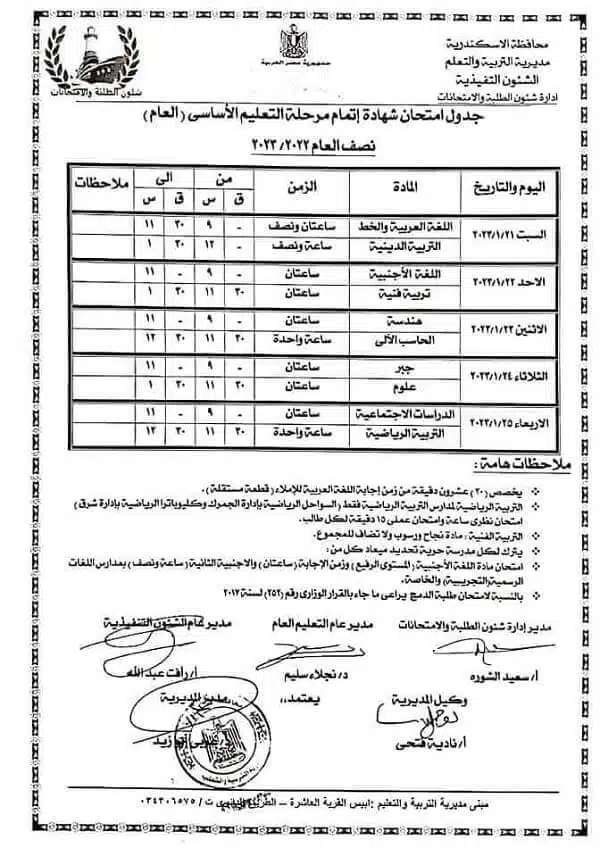 محافظة الاسكندرية
مديرية التربية والتعلم
الشئون التنفيذية
إدارة شئون الطلبة والامتحانات
جمهورية مصر العربية
شئون الطلبة والامتحانات
جدول امتحان شهادة إتمام مرحلة التعليم الأساسى (العام)
نصف العام ٢٠٢٣/٢٠٢٢
اليوم والتاريخ المادة الزمن من الى ملاحظات
ق س ق س
السبت ٢٠٢٣/١/٢١ اللغة العربية والخط ساعتان ونصف - ٩ ٣٠ ١١
التربية الدينية ساعة ونصف - ١٢ ٣٠ ١
الاحد ٢٠٢٣/١/٢٢ اللغة الأجنبية ساعتان - ٩ - ١١
تربية فنية ساعتان ٣٠ ١١ ٣٠ ١
الاثنين ٢٠٢٣/١/٢٣ هندسة ساعتان - ٩ - ١١
الحاسب الألى ساعة واحدة ٣٠ ١١ ٣٠ ١٢
الثلاثاء ٢٠٢٣/١/٢٤ جبر ساعتان - ٩ - ١١
علوم ساعتان ٣٠ ١١ ٣٠ ١
الاربعاء ٢٠٢٣/١/٢٥ الدراسات الاجتماعية ساعتان - ٩ - ١١
التربية الرياضية ساعة واحدة ٣٠ ١١ ٣٠ ١٢
ملاحظات هامة :
يخصص (٢٠) عشرون دقيقة من زمن إجابة اللغة العربية للإملاء (قطعة مستقلة).
التربية الرياضية لمدارس التربية الرياضية فقط (السواحل الرياضية بإدارة الجمرك وكليوباترا الرياضية بإدارة شرق)
امتحان نظرى ساعة وامتحان عملى ١٥ دقيقة لكل طالب.
التربية الفنية : مادة نجاح ورسوب ولا تضاف للمجموع.
يترك لكل مدرسة حرية تحديد ميعاد كل من :
امتحان مادة اللغة الأجنبية (المستوى الرفيع) وزمن الإجابة (ساعتان) والاجنبية الثانية (ساعة ونصف) بمدارس اللغات
الرسمية (التجريبية) والخاصة.
بالنسبة لامتحان طلبة الدمج يراعى ما جاء بالقرار الوزارى رقم (٢٥٢) لسنة ٢٠١٧
مدير إدارة شئون الطلبة والامتحانات مدير عام التعليم العام مدير عام الشئون التنفيذية
أ/ سعيد الشوره د/ نجلاء سليم أ/ رأفت عبد الله
وكيل المديرية يعتمد،، مدير المديرية
أ/ نادية فتحى
مبنى مديرية التربية والتعليم : أبيس القرية العاشرة - الطريق ت / ٠٣٤٣٠٦٥٧٥